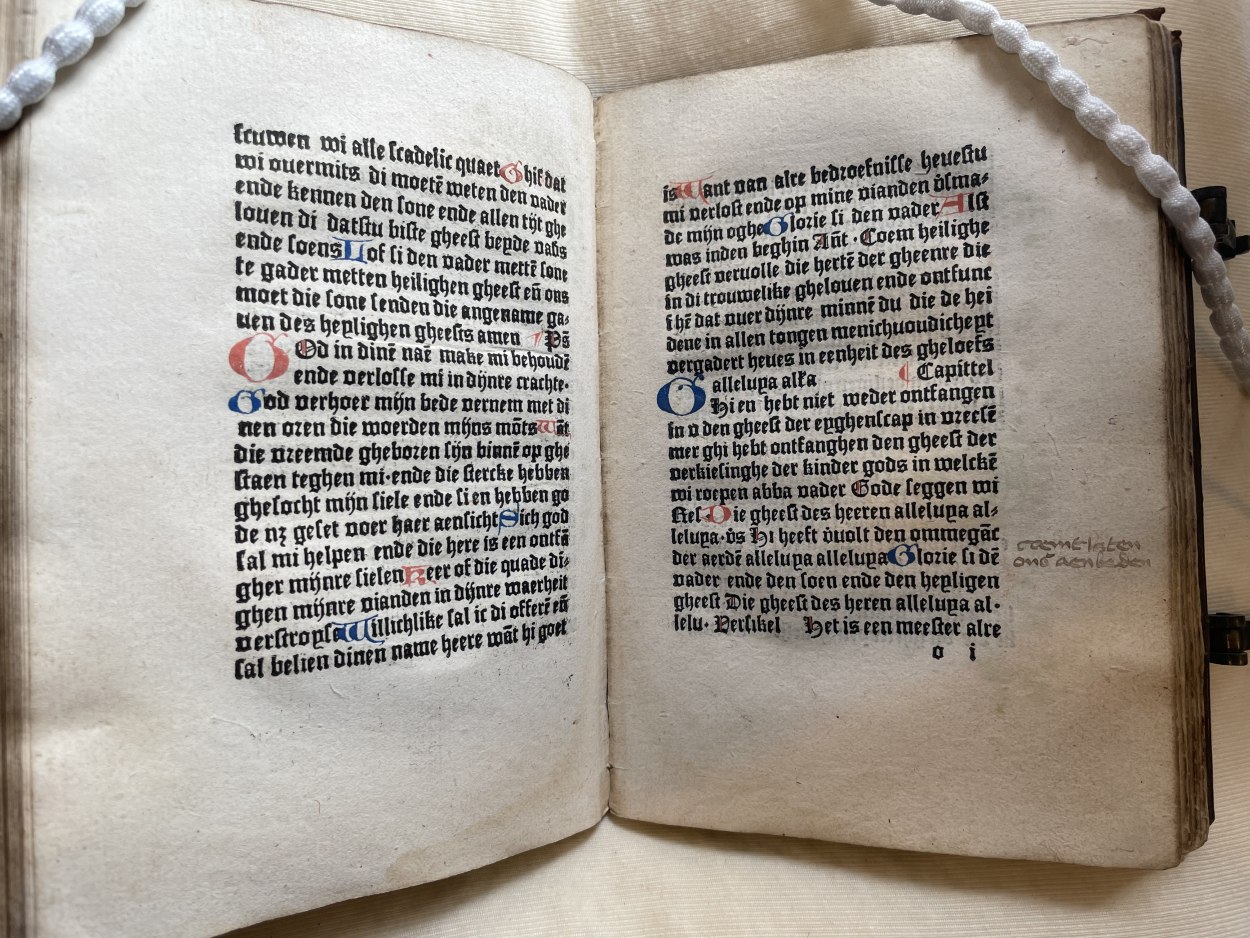 scuwen wi alle scadelic quaet Ghif dat
wi ouermits di moetē weten den vader
ende kennen den sone ende allen tijt ghe
louen di datstu biste gheest beyde vads
ende soens Lof si den vader mettē sone
te gader metten heilighen gheest eñ ons
moet die sone senden die angename ga-
uen des heylighen gheests amen ¶ Ps̄
GOd in dinē naē make mi behoudē
ende verlosse mi in dijnre crachte·
God verhoer mijn bede vernem met di
nen oren die woerden mijns mōts wāt
die vreemde gheboren sijn binnē op ghe
staen teghen mi·ende die stercke hebben
ghesocht mijn siele ende si en hebben go
de nꝫ geset voer haer aensicht Sich god
sal mi helpen ende die here is een ontfā
gher mijnre sielen Keer of die quade di-
ghen mijnre vianden in dijnre waerheit
verstroyse Willichlike sal ic di offerē eñ
sal belien dinen name heere wāt hi goet
is Want van alre bedroefnisse heuestu
mi verlost ende op mine vianden v̄sma-
de mijn oghe Glorie si den vader Alst
was inden beghin Añt · Coem heilighe
gheest veruolle die hertē der gheenre die
in di trouwelike ghelouen ende ontfunc
i hē dat vuer dijnre minnē du die de hei
dene in allen tongen menichuoudicheyt
vergadert heues in eenheit des gheloefs
alleluya alła ¶ Capittel
GHi en hebt niet weder ontfangen
in v den gheest der eyghenscap in vreesē
mer ghi hebt ontfanghen den gheest der
verkiesinghe der kinder gods in welckē
wi roepen abba vader Gode seggen wi
Res Die gheest des heeren alleluya al-
leluya·v̄s Hi heeft v̄uolt den ommegāc
der aerdē alleluya alleluya Glorie si dē
vader ende den soen ende den heyligen
gheest Die gheest des heren alleluya al-
lelu· Versikel Het is een meester alre
o i
coemt laten
ons aenbeden